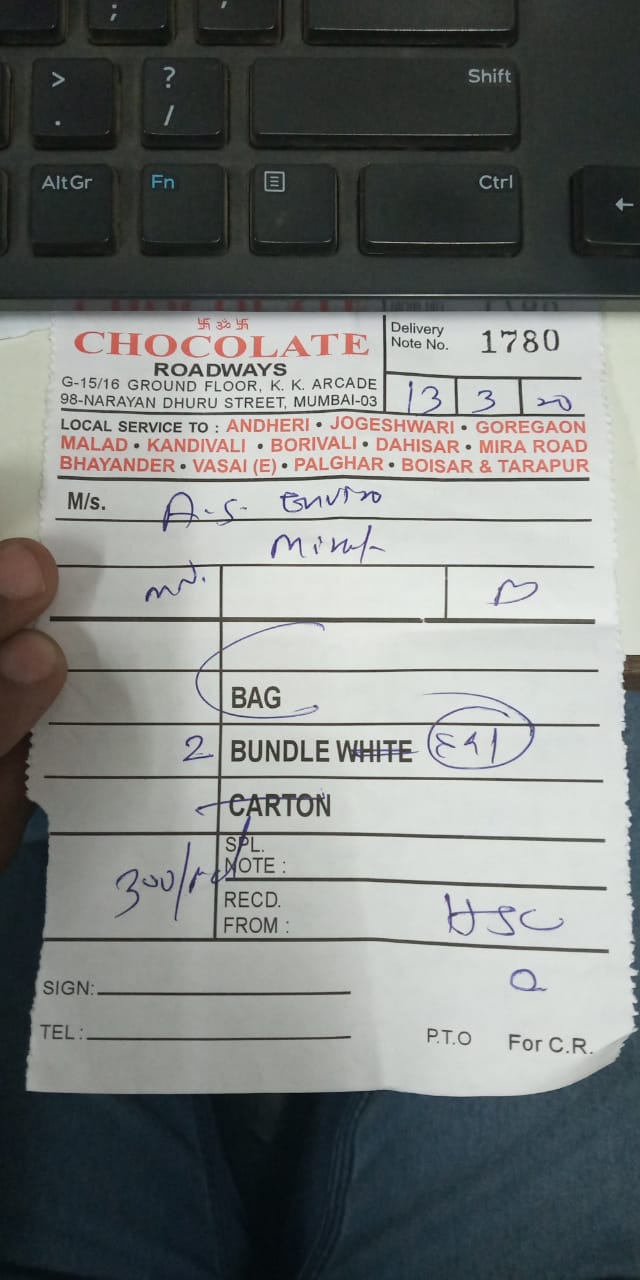 ;
,
>
.
?
/
Shift
AltGr
Fn
Ctrl
←
卐 ॐ 卐
CHOCOLATE
ROADWAYS
G-15/16 GROUND FLOOR, K. K. ARCADE
98-NARAYAN DHURU STREET, MUMBAI-03
Delivery
Note No. 1780
13 3 20
LOCAL SERVICE TO : ANDHERI • JOGESHWARI • GOREGAON
MALAD • KANDIVALI • BORIVALI • DAHISAR • MIRA ROAD
BHAYANDER • VASAI (E) • PALGHAR • BOISAR & TARAPUR
M/s. A.S. Enviro
BAG
2 BUNDLE WHITE
CARTON
SPL.
NOTE :
300/
RECD.
FROM : HSC
SIGN:
TEL :
P.T.O For C.R.